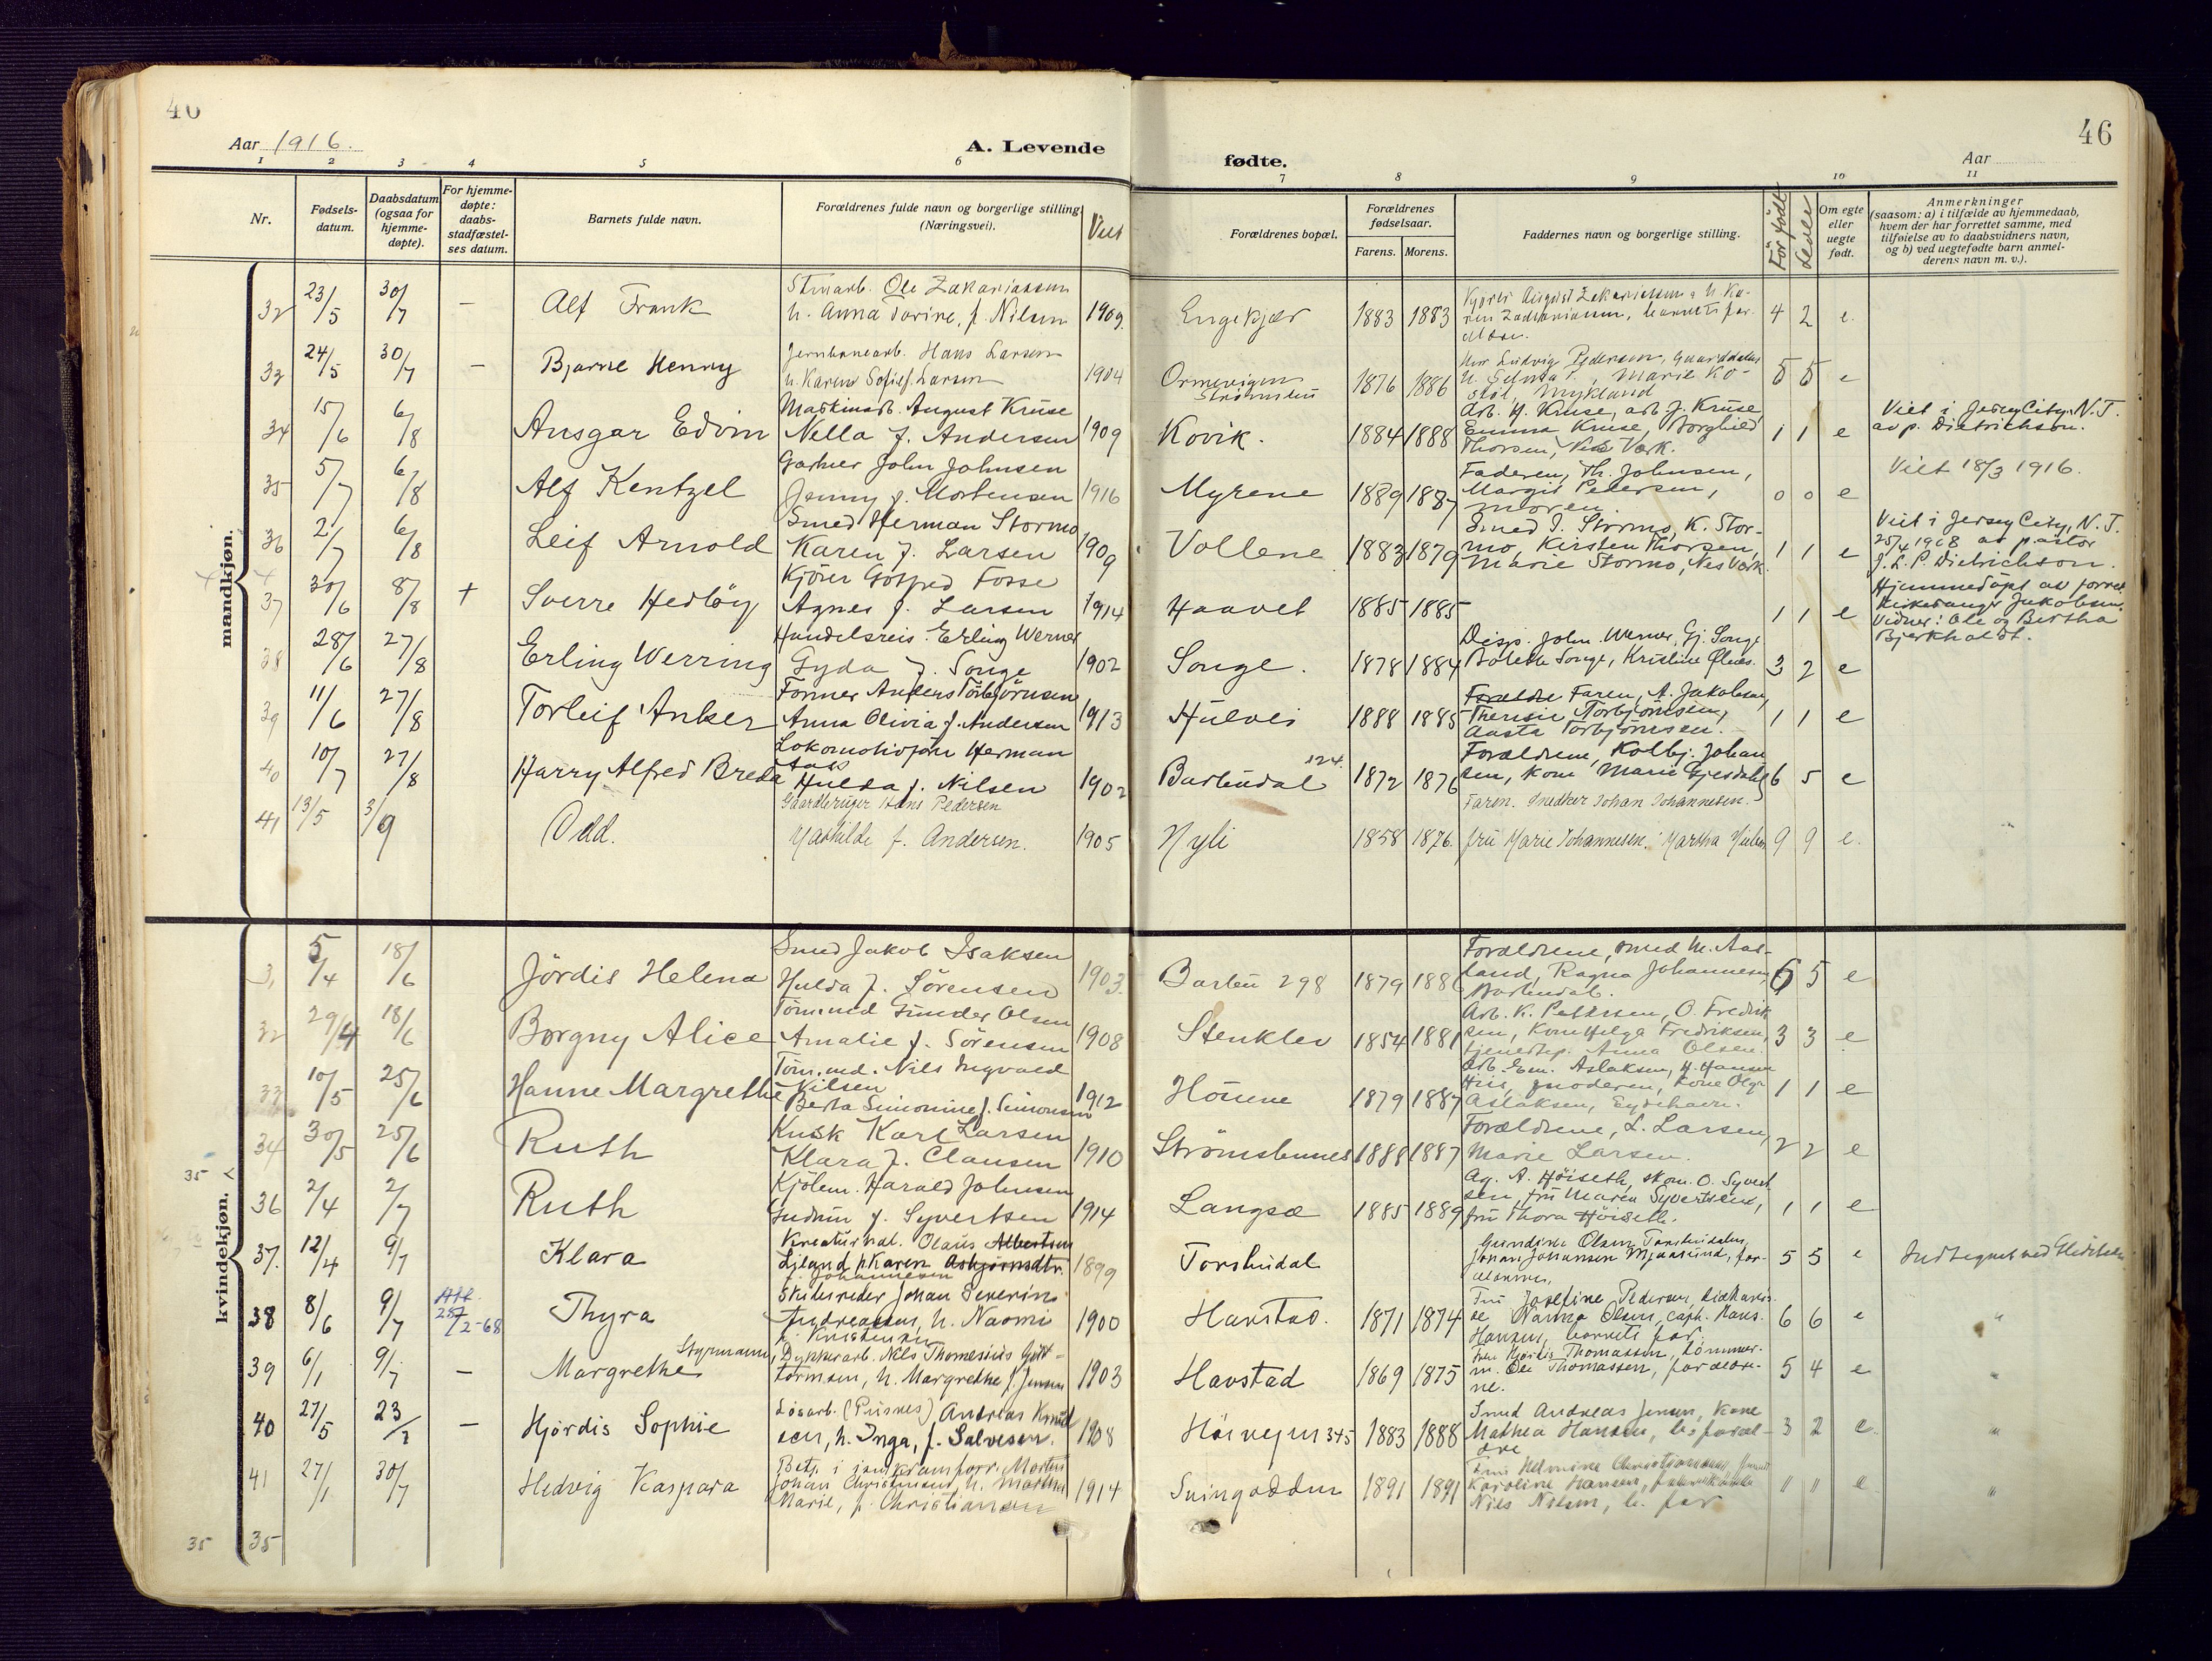 46
46
Aar 1916.
A. Levende
fødte.
Aar
1 2 3 4 5 6 7 8 9 10 11
Nr.
Fødsels-
datum.
Daabsdatum
(ogsaa for
hjemme-
døpte).
For hjemme-
døpte:
daabs-
stadfæstel-
ses datum.
Barnets fulde navn.
Forældrenes fulde navn og borgerlige stilling
(Næringsvei).
Viet
Forældrenes bopæl.
Forældrenes
fødselsaar.
Farens. Morens.
Faddernes navn og borgerlige stilling.
Før født
Levde
Om egte
eller
uegte
født.
Anmerkninger
(saasom: a) i tilfælde av hjemmedaab,
hvem der har forrettet samme, med
tilføielse av to daabsvidners navn,
og b) ved uegtefødte barn anmel-
derens navn m. v.).
mandkjøn.
32 23/5 30/7 — Alf Frank
Ole Zakariassen
h. Anna Torine, f. Nilsen 1909.
Engekjær 1883 1883 4 2 e.
33 24/5 30/7 — Bjarne Henry
Jernbanearb. Hans Larsen
h. Karen Sofie f. Larsen 1904
Ormevigen
Strømsbu
1876 1886 5 5 e
34 15/6 6/8 Ansgar Edvin
Maskinarb. August Kruse
Nella f. Andersen 1909
Kovik. 1884 1888
Arb. H. Kruse, arb. J. Kruse
Emma Kruse, Borghild
Thorsen, Nes Værk.
1 1 e
Viet i Jersey City N. J.
av p. Dietrichson.
35 5/7 6/8 Alf Kentzel
Gartner John Johnsen
Jenny f. Mortensen 1916
Myrene 1889 1887
Faderen, Th. Johnsen,
Margit Pedersen,
moren.
0 0 e
Viet 18/3 1916.
36 2/7 6/8 Leif Arnold
Smed Herman Stormo
Karen f. Larsen 1909
Vollene 1883 1879
Smed J. Stormo, K. Stor-
mo, Kirsten Thorsen,
Marie Stormo, Nes Værk.
1 1 e
Viet i Jersey City, N. J.
25/4 1908 av pastor
J. L. P. Dietrichson.
37 30/6 8/8 + Sverre Hedley
Kjører Gotfred Fosse
Agnes f. Larsen 1914
Haavet 1885 1885 1 1 e
Hjemmedøpt av forret.
kirkesanger Jakobsen.
Vidner: Ole og Bertha
Bjerkholdt.
38 28/6 27/8 Erling Werring
Handelsreis. Erling Werner
Gyda f. Songe 1902
Songe. 1878 1884
Disp. John Werner, Gj. Songe
Bolette Songe, Kristine
3 2 e
39 11/6 27/8 Torleif Anker
Former Anders Torbjörnsen
Anna Olivia f. Andersen 1913
Hulvei 1888 1885
Forældre Faren, A. Jakobsen,
Theresie Torbjörnsen,
Aasta Torbjörnsen.
1 1 e
40 10/7 27/8 Harry Alfred Breda
Herman
Aas
Hulda f. Nilsen 1902
Barbudal 124. 1872 1876
Forældrene, Kolbj. Johan
sen, kone Marie Gjesdahl
6 5 e
41 13/5 3/9 Odd.
Gaardbruger Hans Pedersen
Mathilde f. Andersen. 1905
Nyli 1858 1876.
Faren. Snedker Johan Johannesen.
fru Marie Johannesen. Martha
9 9 e.
kvindekjøn.
31 5/4 18/6 Jördis Helena
Smed Jakob Isaksen
Hulda f. Sörensen 1903.
Barbu 298 1879
Forældrene, smed M. Aas-
land, Ragna Johannesen,
Barbudal.
6 5 e
32 29/4 18/6 Borgny Alice
Töm.md Gunder Olsen
Amalie f. Sörensen 1908
Stenklev 1854 1881
Arb. K. Pettersen, O. Fredrik
sen, kone Helga Fredriksen,
tjenestep. Anna Olsen.
3 3 e
33 10/5 25/6 Hanne Margrethe
Töm.md. Nils Ingvald
Nilsen
Berta Simonine f. Simonsen 1912
1879 1887
Arb. Em. Aslaksen, H. Hansen
His, moderen, kone Olga
Aslaksen, Eydehavn.
1 1 e
34 30/5 25/6 Ruth
Kusk Karl Larsen
Klara f. Clausen 1910
Strömsbunes 1888 1887
Forældrene, L. Larsen,
Marie Larsen.
2 2 e
35
36 2/4 2/7 Ruth
Kjölem. Harald Johnsen
Gudrun f. Syvertsen 1914
Langsæ 1885 1889
Ag. A. Höiseth, skom. O. Syvert
sen, fru Maren Syvertsen,
fru Thora Höiseth.
1 1 e
37. 12/4 9/7 Klara
Kreaturhal. Olaus Albertsen
Liland h. Karen Asbjørnsdtr.
f. Johannesen 1899
Torsbudal
Gundine Olsen, Torsbudalen,
Johan Johansen Mjaasund, for-
ældrene.
5 5 e
38 8/6 9/7 Att. 28/2-68 Thyra
Skibsreder Johan Severin
Andreassen, h. Naomi
f. Kristensen 1900
Havstad. 1871 1874
Fru Josefine Pedersen,
Nanna Olsen, capt. Hans
Hansen, barnets far.
6 6 e "
39 6/1 9/7 — Margrethe
Styrmann, Dykkerarb. Nils Thomesius Gutt-
ormsen, h. Margrethe f. Jensen 1903
Havstad 1869 1875
Fru Hjördis Thomassen, tömmer-
m. Ole Thomassen, forældre-
ne.
5 4 e "
40 27/5 23/7 — Hjørdis Sophie
Løsarb. (Pusnes) Andreas Knud
sen, h. Inga, f. Salvesen. 1908
Höivejen 345 1883 1888
Smed Andreas Jensen, kone
Mathea Hansen, b.s foræl-
dre
3 2 e. "
41 27/1 30/7 Hedvig Kaspara
Betj. i isenkramforr. Morten
Johan Christensen, h. Martha
Marie, f. Christiansen 1914
Svingodden 1891 1891
Karoline Hansen,
Nils Nilsen, b. far
" " e "
35 35